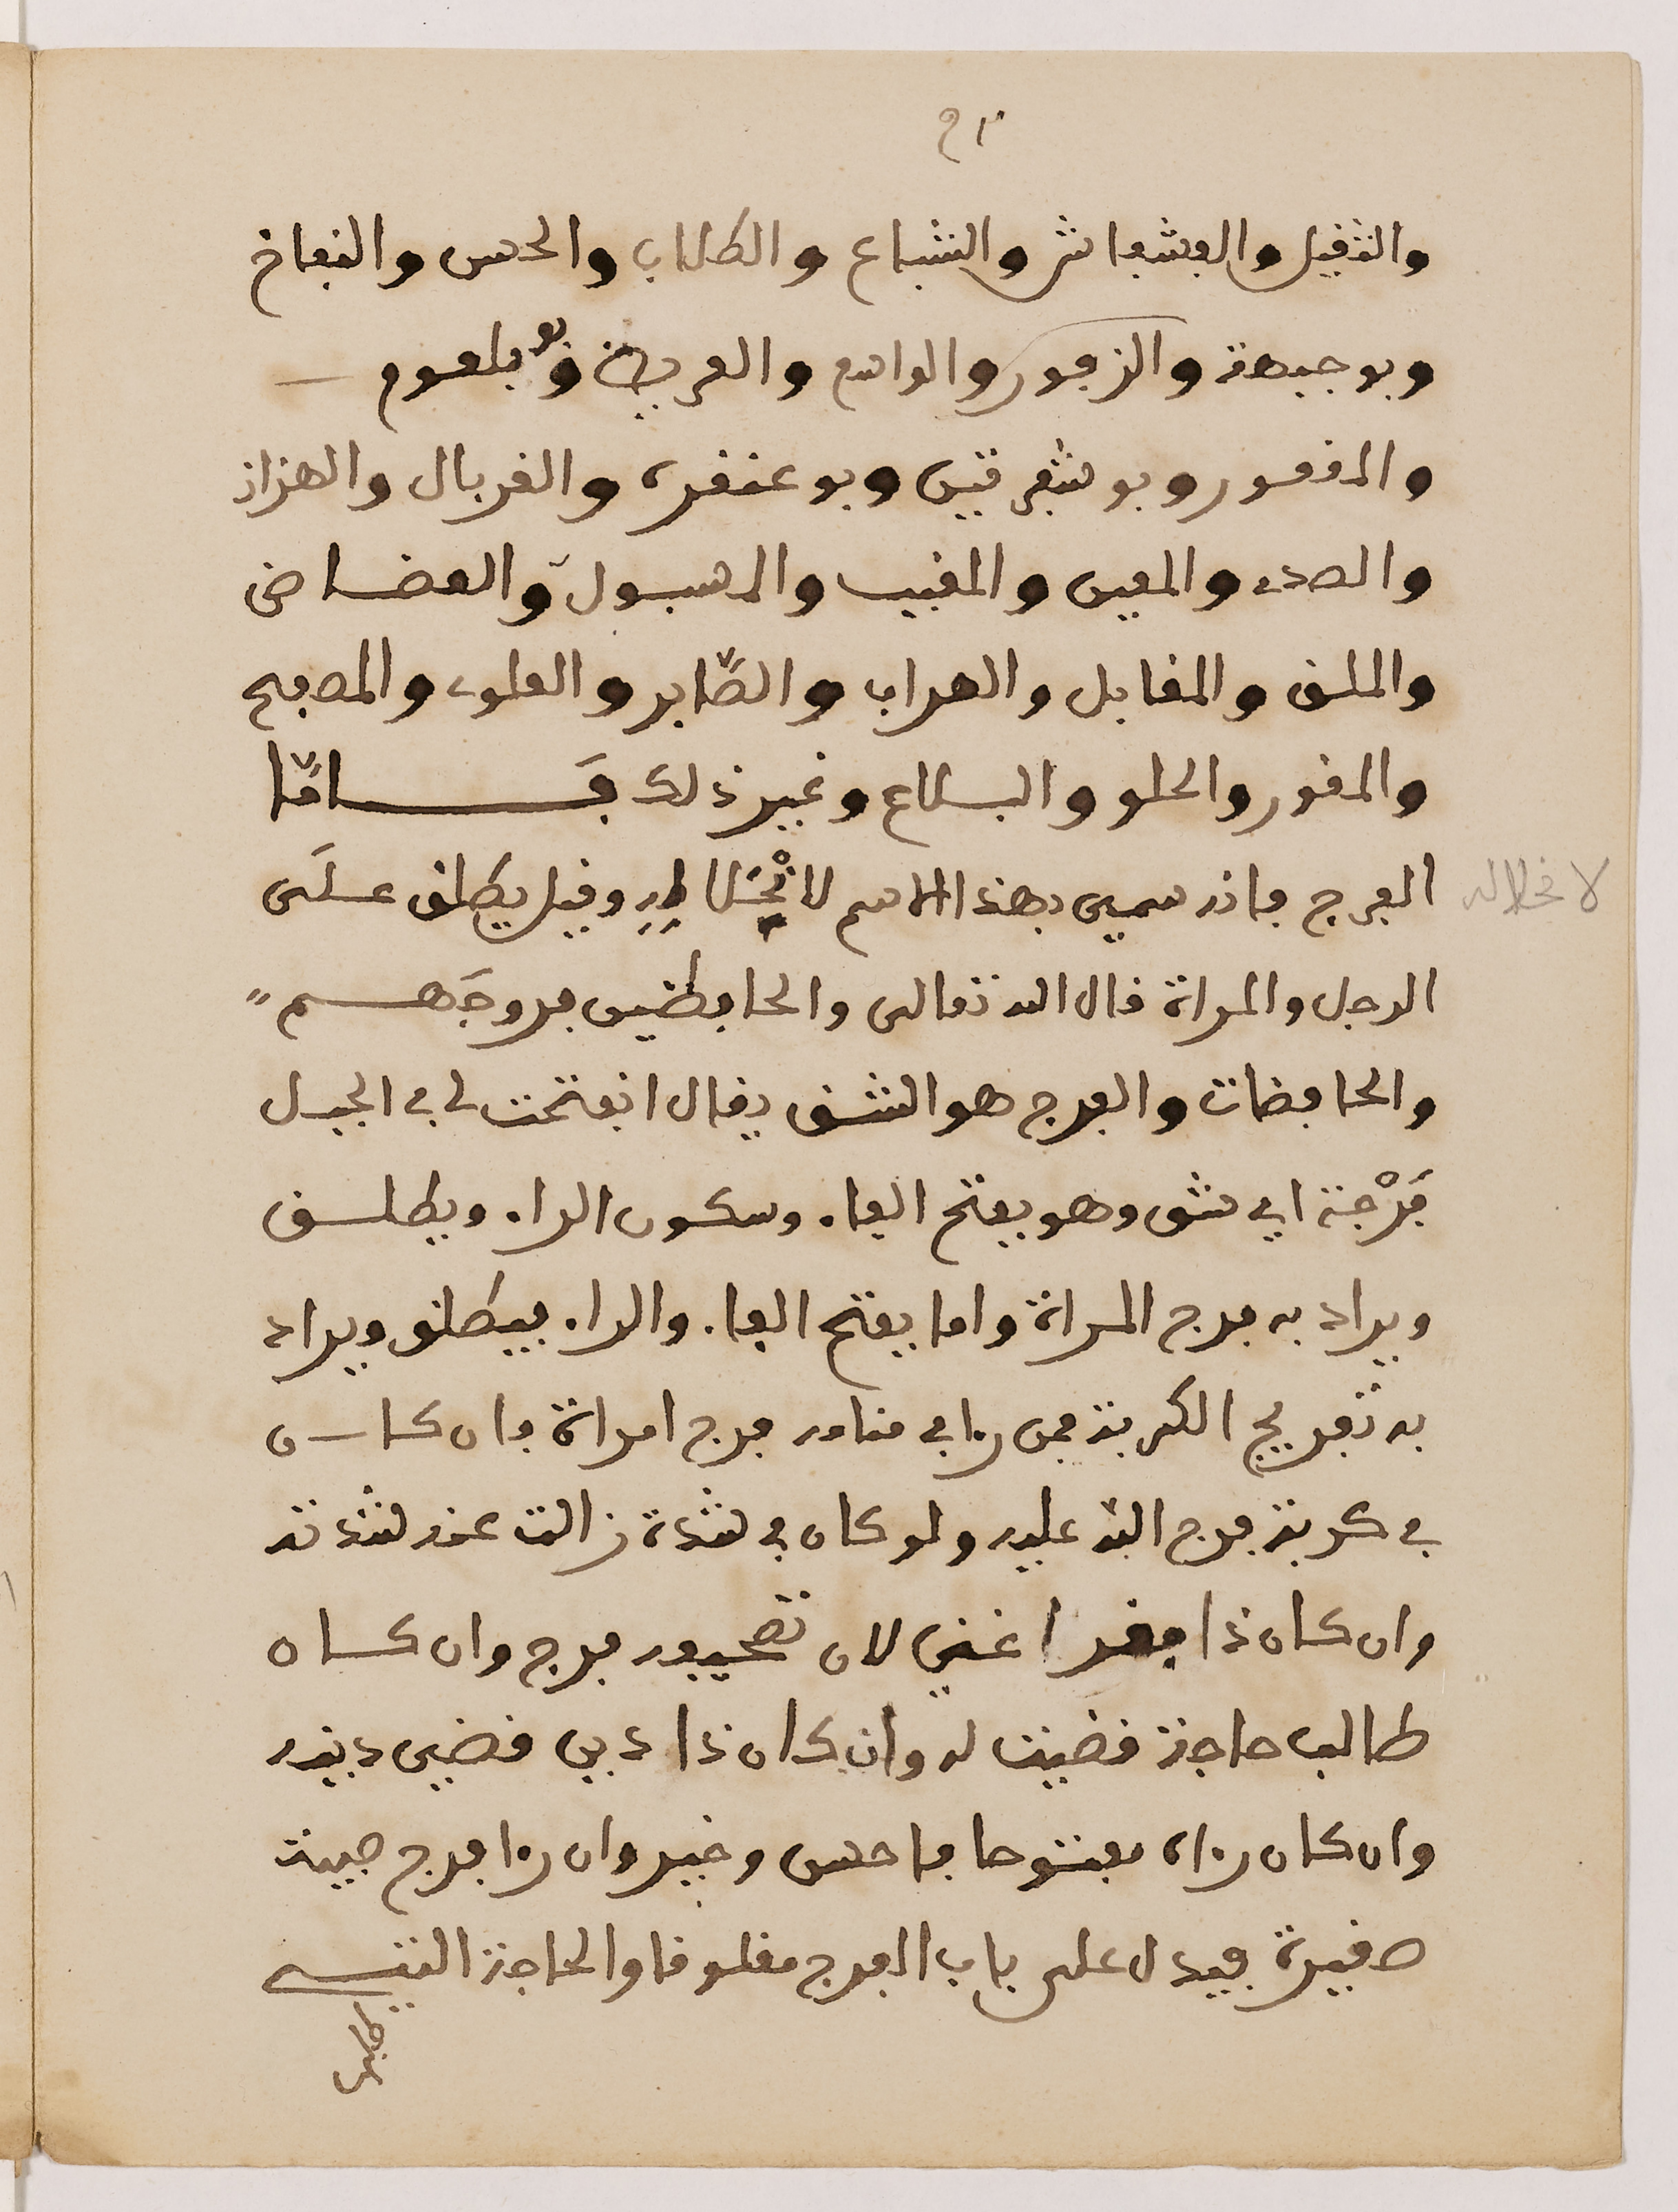 والثقيل والفشفاش والبشاع والطلاب والحسن والنفاخ
وبو جبهة والزعور والواسع والعريض وبو بلعوم
والمقعور وبو شفرتين وبو عنقرة والغربال والهزاز
والصدى والمعين والمغيب والمسبول والعضاض
والملقى والمقابل والهراب والصّابر والعلوى والمصفح
والمغور والحلو والبلاع وغير ذلك فَامّا
الفرج فانه سمي بهذا الاسم لانْحلاله وقيل يطلق علَى
الرجل والمراة قال الله تعالى والحافظين فروجَهم
والحافضات والفرج هو الشق يقال انفتحت لي في الجبل
فَرْجة اي شق وهو بفتح الفاء وسكون الراء ويطلق
ويراد به فرج المراة واما بفتح الفاء والراء فيطلق ويراد
به تفريج الكربة فمن راى في منامه فرج امراة فان كان
في كربة فرج الله عليه ولو كان في شدة زالت عنه شدته
وان كان ذا فقرا غني لان تصحيفه فرج وان كان
طالب حاجة قضيت له وان كان ذا دين قضي دينه
وان كان راه مفتوحا فاحسن وخير وان را فرج صبية
صغيرة فيدل على باب الفرج مغلوقا والحاجة التي